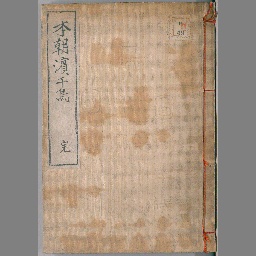 本朝濱千鳥 完